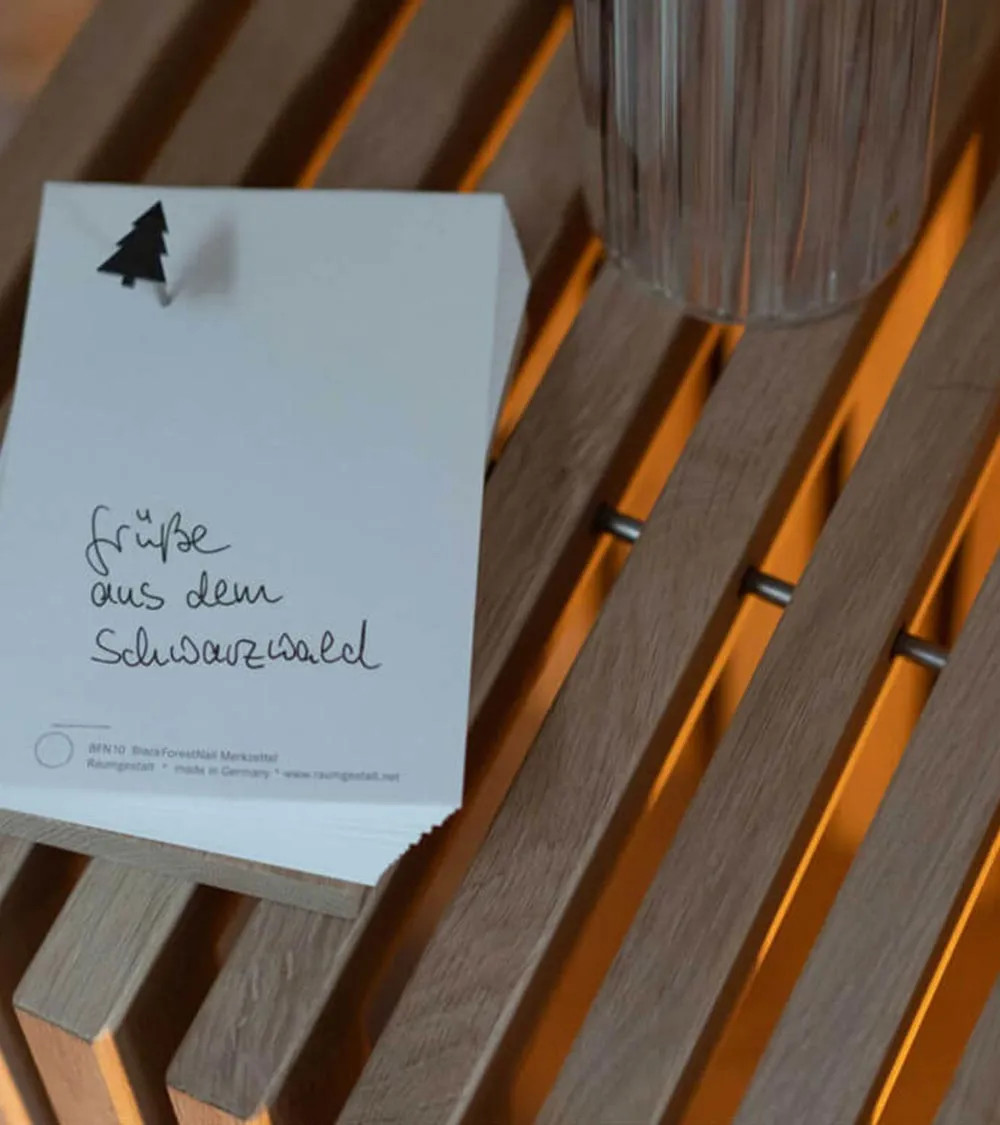 Grüße
aus dem
Schwarzwald
BFN10 BlackForestNail Merkzettel
Raumgestalt * made in Germany * www.raumgestalt.net